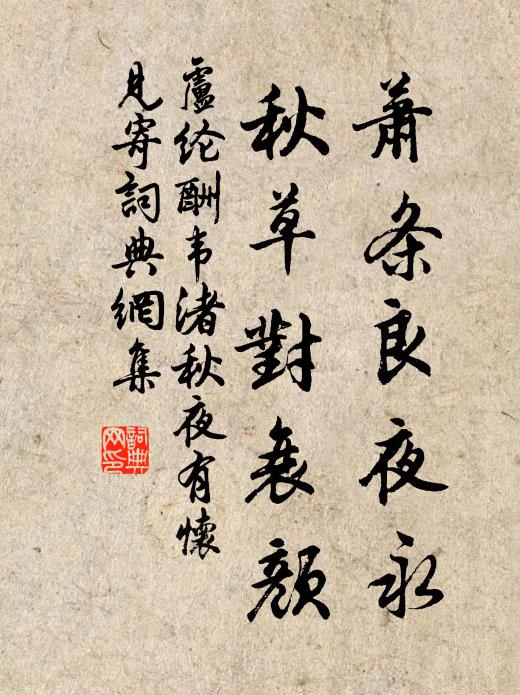 蕭条良夜永
秋草對衰顔
盧纶酬韦渚秋夜有懷
見寄詞典網集
詞典
网印